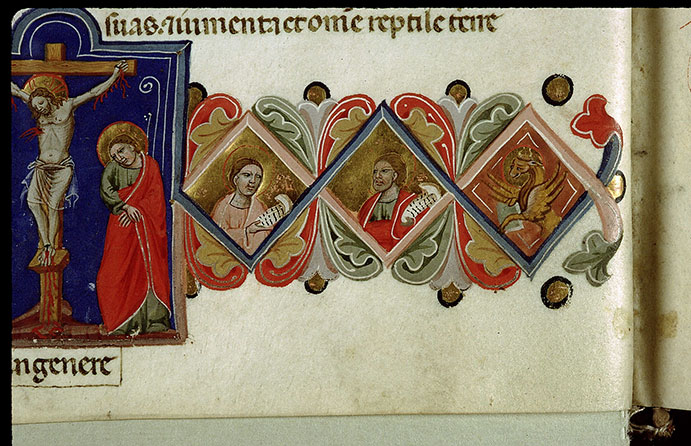 suas. iumenta et om̄e reptile terre
in genere